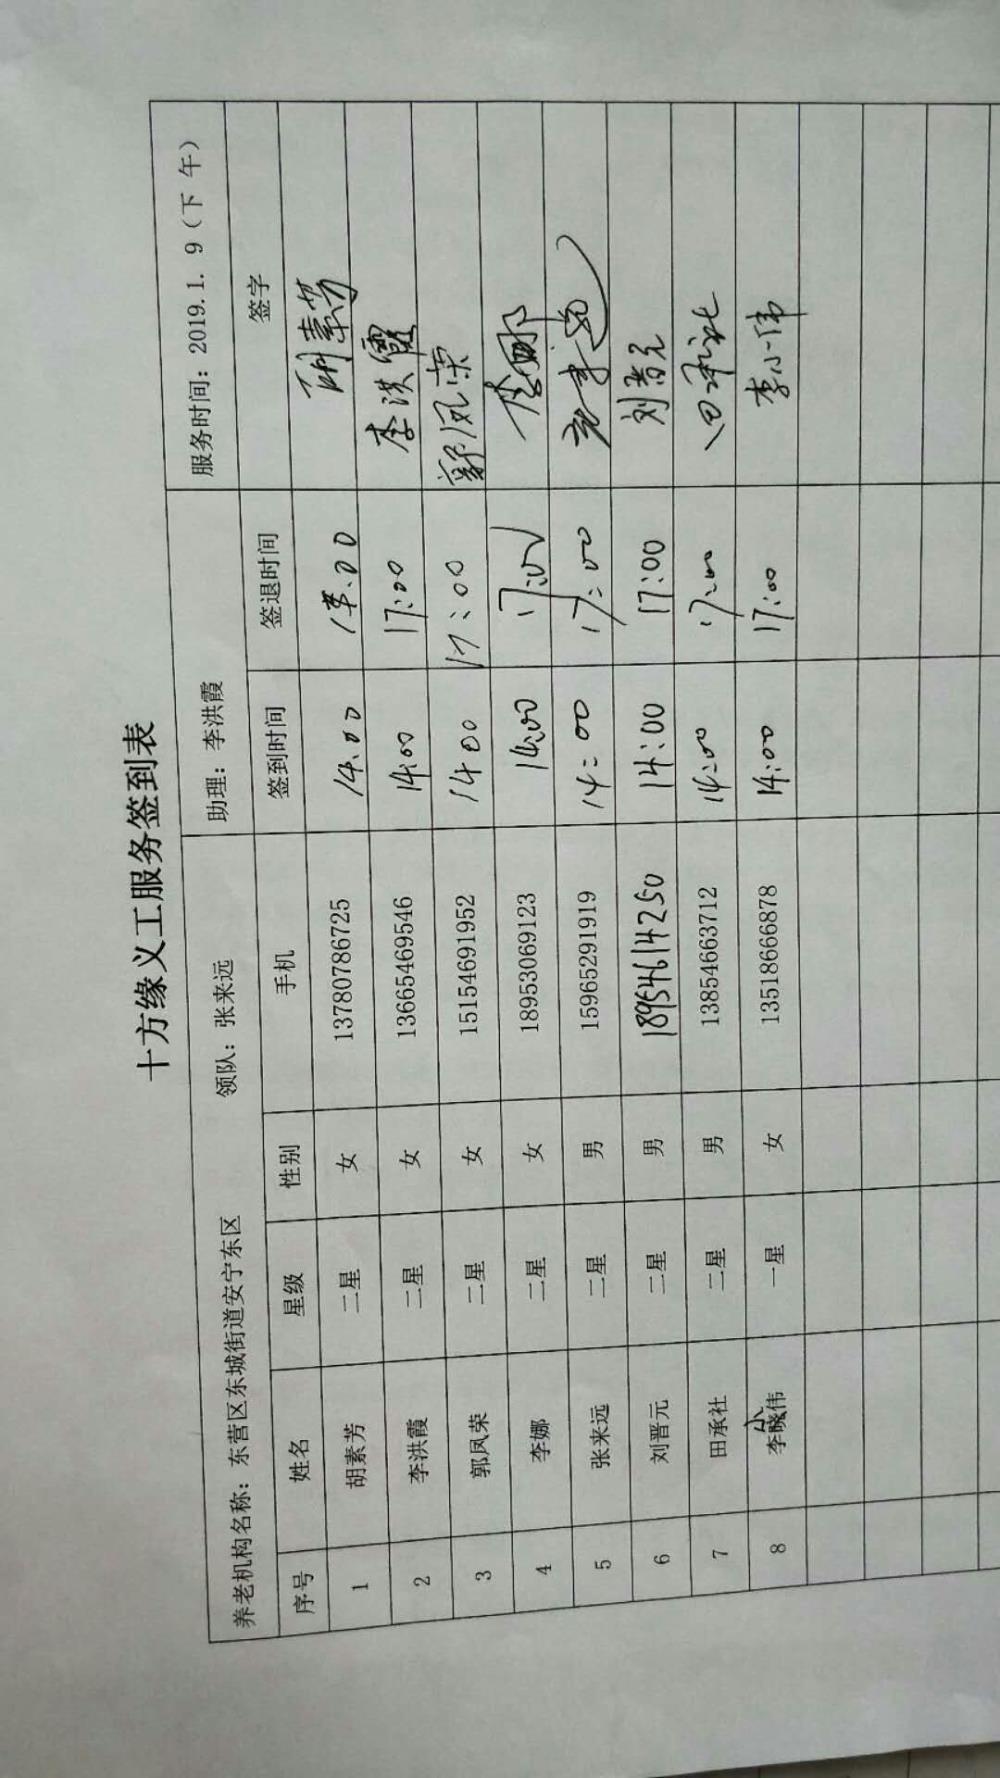 十方缘义工服务签到表
养老机构名称：东营区东城街道安宁东区 领队：张来远 助理：李洪霞 服务时间：2019.1.9（下午）
序号 姓名 星级 性别 手机 签到时间 签退时间 签字
1 胡素芳 二星 女 13780786725 14.00 胡素芳
2 李洪霞 二星 女 13665469546 14:00 17:00 李洪霞
3 郭凤荣 二星 女 15154691952 14 00 17:00 郭凤荣
4 李娜 二星 女 18953069123 14:00 17:00 李娜
5 张来远 二星 男 15965291919 14:00 17:00 张来远
6 刘晋元 二星 男 18954614250 14:00 17:00 刘晋元
7 田承社 二星 男 13854663712 14:00 17:00 田承社
8 李小伟 一星 女 13518666878 14:00 17:00 李小伟